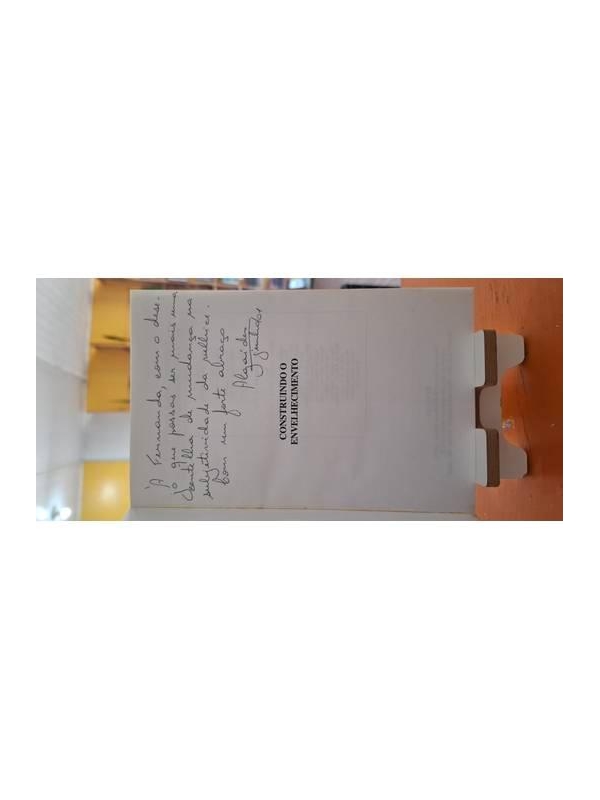 À Fernanda, com o dese-
jo que possas ser mais uma
centelha de mudança na
subjetividade da velhice.
Com um forte abraço
CONSTRUINDO O
ENVELHECIMENTO